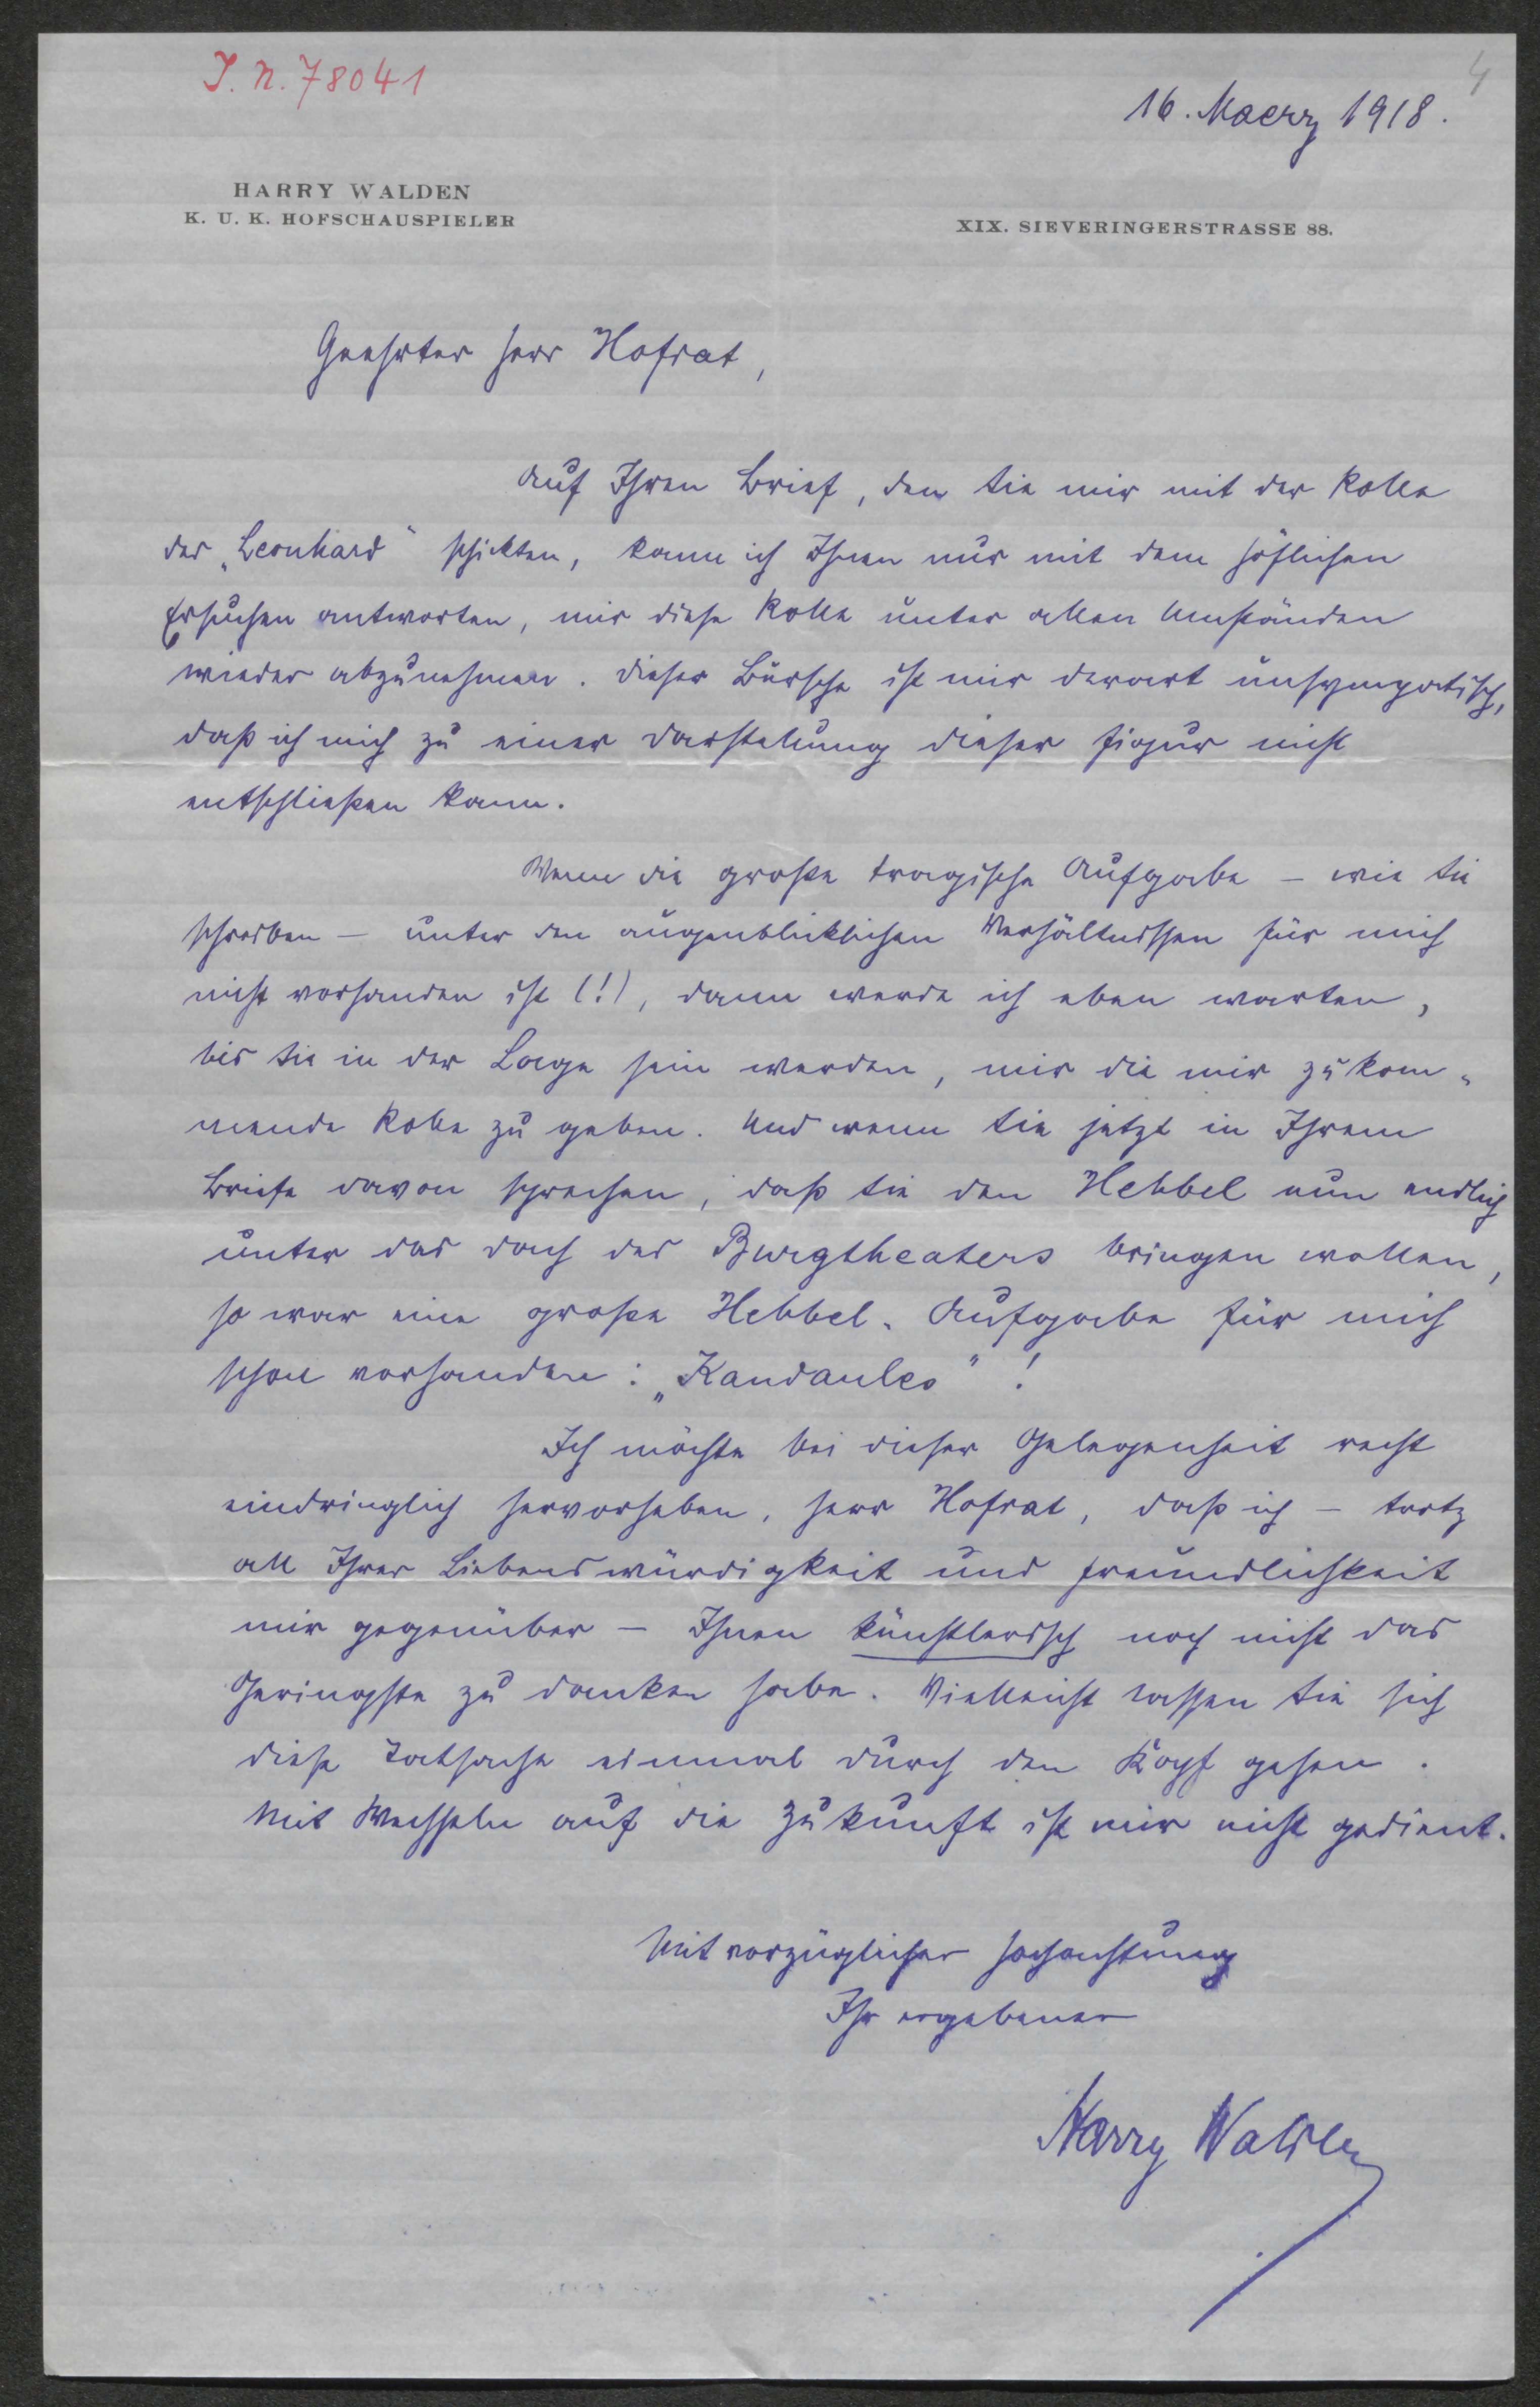 I. N. 78041
4
16. Maerz 1918.
HARRY WALDEN
K. U. K. HOFSCHAUSPIELER
XIX. SIEVERINGERSTRASSE 88.
Geehrter Herr Hofrat,
Auf Ihren Brief, den Sie mir mit der Rolle
des „Leonhard“ schickten, kann ich Ihnen nur mit dem höflichen
Ersuchen antworten, mir diese Rolle unter allen Umständen
wieder abzunehmen. Dieser Bursche ist mir derart unsympatisch,
daß ich mich zu einer Darstellung dieser Figur nicht
entschließen kann.
Wenn die große tragische Aufgabe – wie Sie
schreiben – unter den augenblicklichen Verhältnissen für mich
nicht vorhanden ist (!), dann werde ich eben warten,
bis Sie in der Lage sein werden, mir die mir zukom-
mende Rolle zu geben. Und wenn Sie jetzt in Ihrem
Briefe davon sprechen, daß Sie den Hebbel nun endlich
unter das Dach des Burgtheaters bringen wollen,
so war eine große Hebbel-Aufgabe für mich
schon vorhanden: „Kandaules“!
Ich möchte bei dieser Gelegenheit recht
eindringlich hervorheben, Herr Hofrat, daß ich – trotz
all Ihrer Liebenswürdigkeit und Freundlichkeit
mir gegenüber – Ihnen künstlerisch noch nicht das
Geringste zu danken habe. Vielleicht lassen Sie sich
diese Tatsache einmal durch den Kopf gehen.
Mit Wechseln auf die Zukunft ist mir nicht gedient.
Mit vorzüglicher Hochachtung
Ihr ergebener
Harry Walden